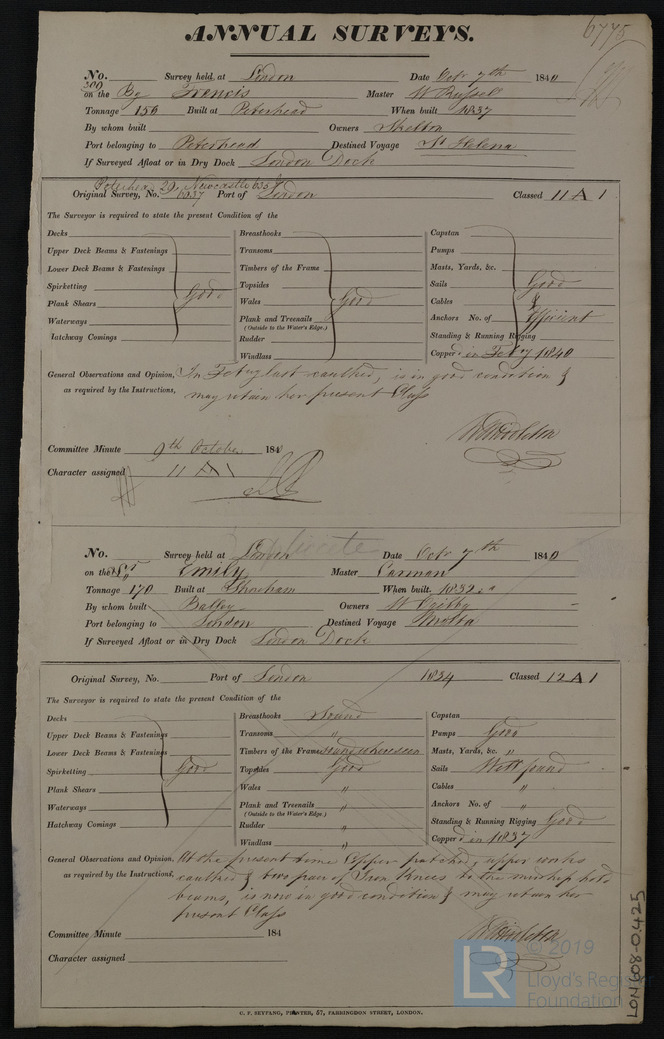 6775
ANNUAL SURVEYS.
No. Survey held at London Date Octr 7th 1840
on the Bg Francis Master W Russel
Tonnage 156 Built at Peterhead When built 1837
By whom built Owners Skelton
Port belonging to Peterhead Destined Voyage St Helena
If Surveyed Afloat or in Dry Dock London Dock
Original Survey, No. Port of London Classed 11 A 1
The Surveyor is required to state the present Condition of the
Decks Breasthooks Capstan
Upper Deck Beams & Fastenings Transoms Pumps
Lower Deck Beams & Fastenings Timbers of the Frame Masts, Yards, &c.
Spirketting Topsides Sails Good
Plank Shears Good Wales Good Cables &
Waterways Plank and Treenails Anchors No. of Efficient
(Outside to the Water's Edge.)
Hatchway Comings Rudder Standing & Running Rigging
Windlass Copper'd in Feby 1840
General Observations and Opinion, In Feby last caulked, is in good condition &
as required by the Instructions, may retain her present Class
Committee Minute 9th October 1840
Character assigned 11 A 1
Duplicate
No. Survey held at London Date Octr 7th 1840
on the Emily Master Carman
Tonnage 170 Built at Shoreham When built 1832
By whom built Balley Owners W Ogilby
Port belonging to London Destined Voyage Malta
If Surveyed Afloat or in Dry Dock London Dock
Original Survey, No. Port of London 1834 Classed 12 A 1
The Surveyor is required to state the present Condition of the
Decks Breasthooks Sound Capstan
Upper Deck Beams & Fastenings Transoms " Pumps Good
Lower Deck Beams & Fastenings Timbers of the Frame Masts, Yards, &c. "
Spirketting Good Topsides Good Sails Well found
Plank Shears Wales " Cables "
Waterways Plank and Treenails " Anchors No. of "
(Outside to the Water's Edge.)
Hatchway Comings Rudder " Standing & Running Rigging Good
Windlass " Copper'd in 1837
General Observations and Opinion, At the present time Copper patched, upper works
as required by the Instructions, caulked & two pair of Iron Knees to the midship hold
beams, is now in good condition & may retain her
present Class
Committee Minute 184
Character assigned
C. F. SEYFANG, PRINTER, 57, FARRINGDON STREET, LONDON.
LON608-0425
LR © 2019
Lloyd's Register
Foundation